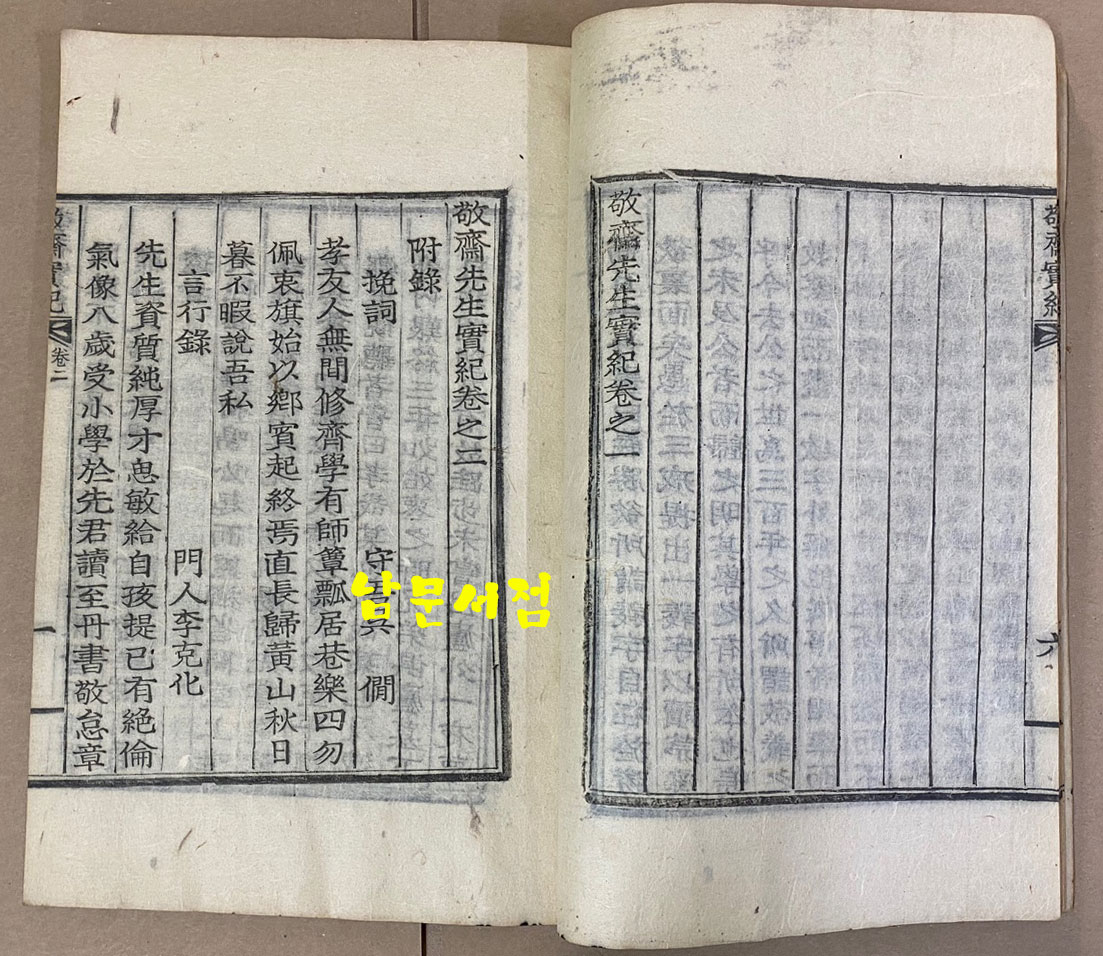 敬齋實紀
六
敬齋先生實紀卷之一
敬齋先生實紀卷之二
附錄
挽詞 守吾 僩
孝友人無間修齊學有師簞瓢居巷樂四勿
佩衷旗始以鄕賓起終焉直長歸黃山秋日
暮不暇說吾私
言行錄 門人李克化
先生資質純厚才思敏給自孩提已有絶倫
氣像八歲受小學於先君讀至丹書敬怠章
敬齋實紀 卷二 一
남문서점